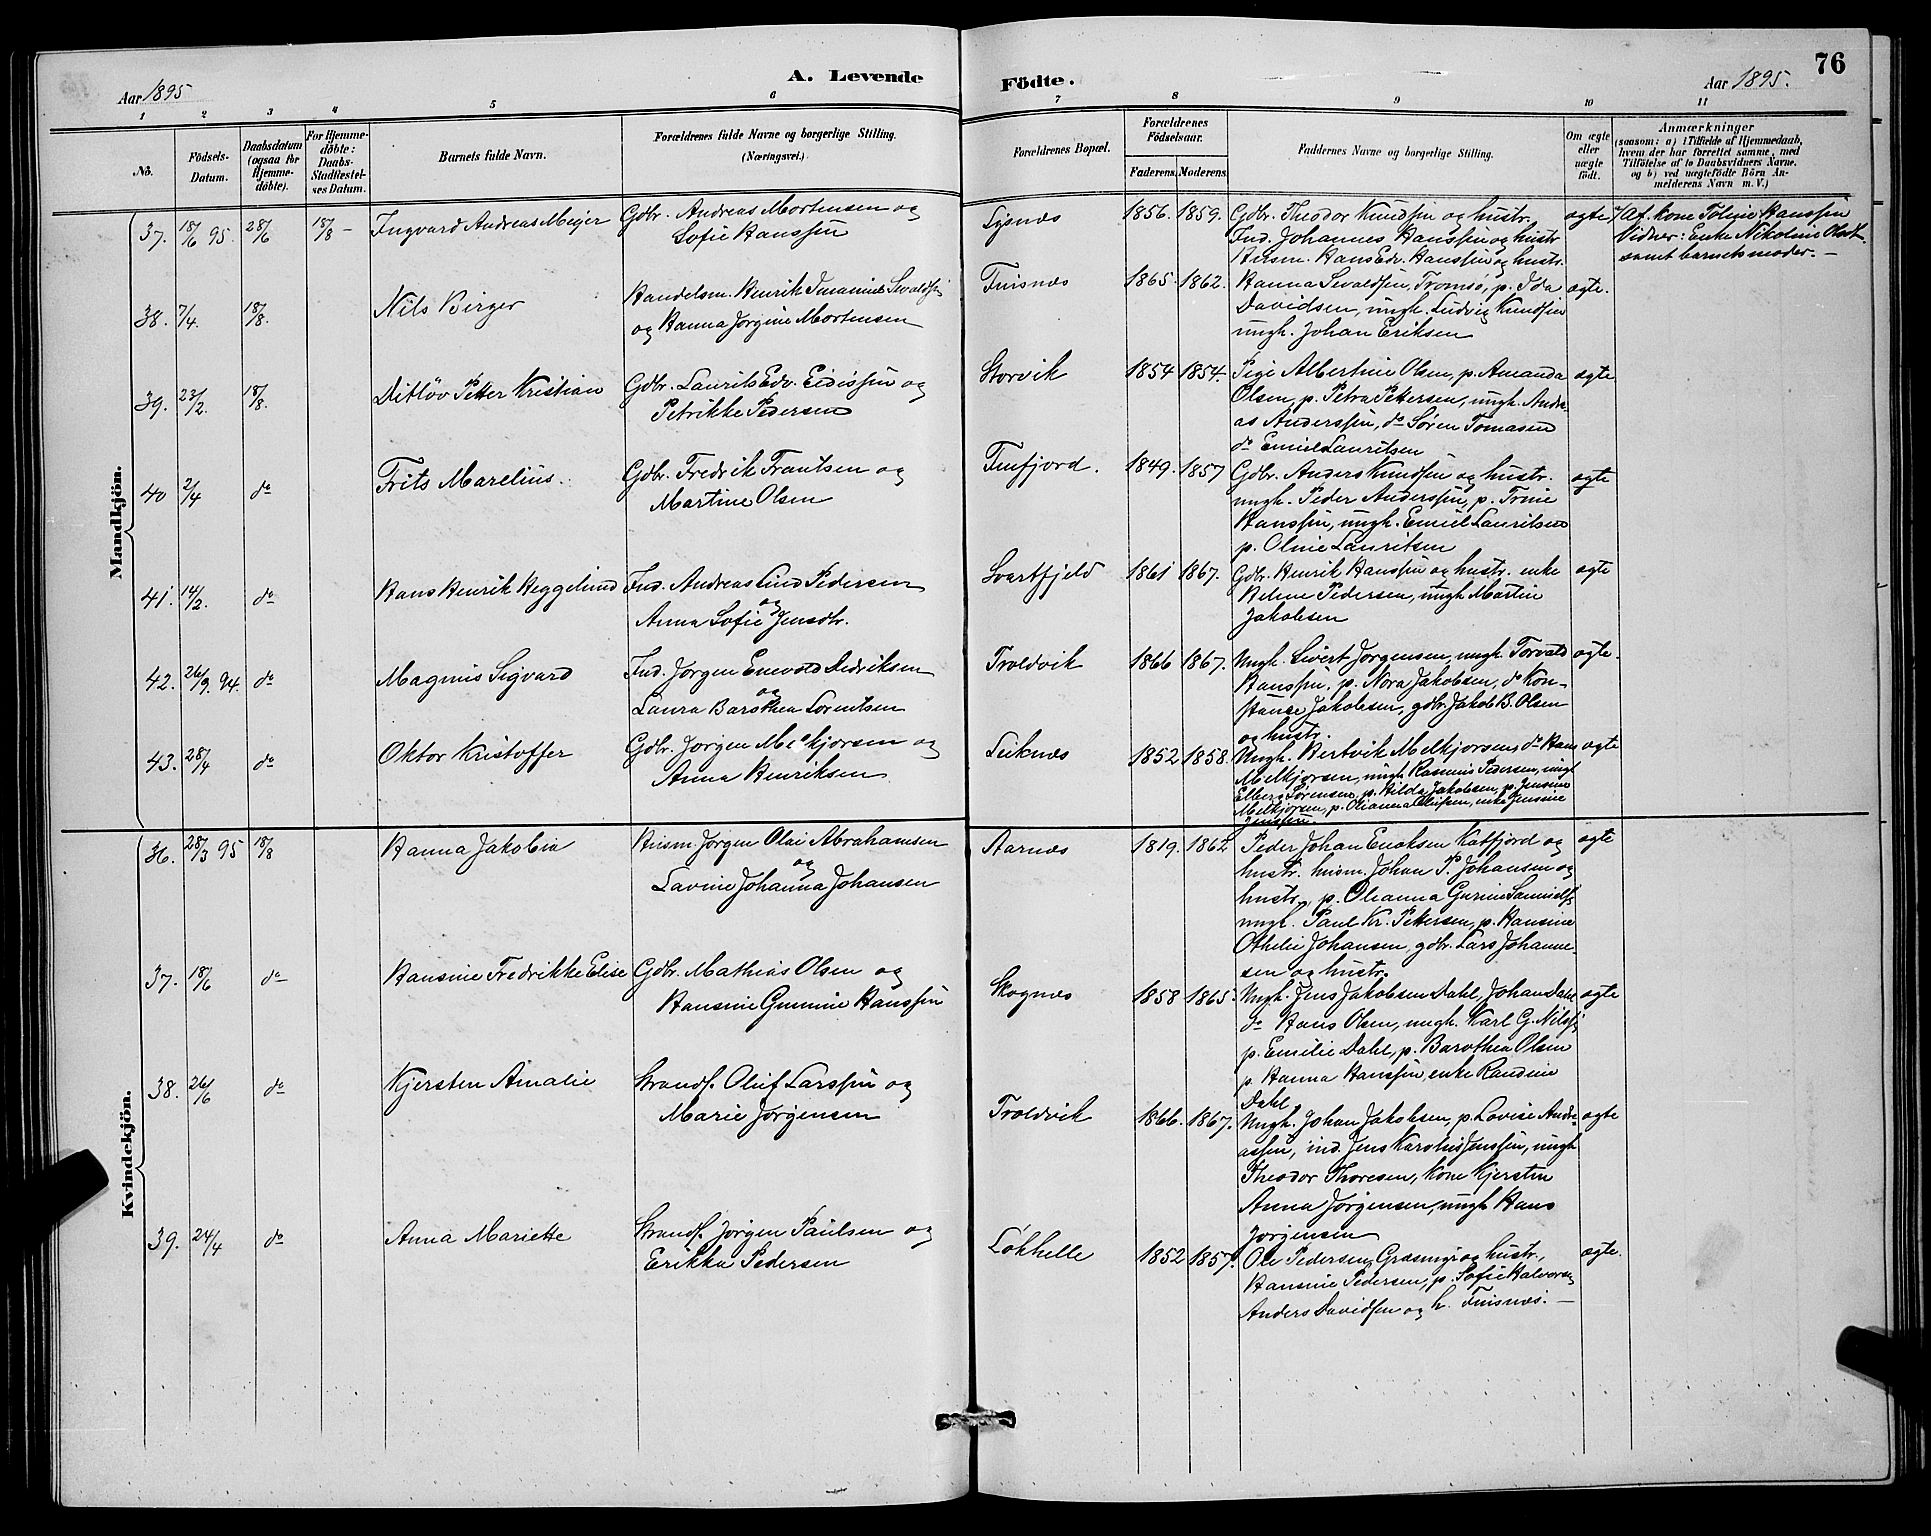 Aar 1895
A. Levende
Födte.
Aar 1895.
76
1 2 3 4 5 6 7 8 9 10 11
No.
Födsels-
Datum.
Daabsdatum
(ogsaa for
Hjemme-
döbte).
For Hjemme-
döbte:
Daabs-
Stadfæstel-
ses Datum.
Barnets fulde Navn.
Forældrenes fulde Navne og borgerlige Stilling.
(Næringsvei.)
Forældrenes Bopæl.
Forældrenes
Födselsaar.
Faderens. Moderens.
Faddernes Navne og borgerlige Stilling.
Om ægte
eller
uægte
födt.
Anmærkninger
(saasom: a) i Tilfælde af Hjemmedaab,
hvem der har forrettet samme, med
Tilföielse af to Daabsvidners Navne.
og b) ved uægtefödte Börn An-
melderens Navn m. V.)
Mandkjön.
37. 18/6 95. 28/6 18/8 - Ingvard Andreas Meyer Gdbr. Andreas Mortensen og
Sofie Hanssen
Lysnæs 1856. 1859. Gdbr. Theodor Knudsen og hustr.
Ind. Johannes Hanssen og hustr
Husm. Hans Edv. Hanssen og hustr.
ægte
Af kone Hanssen
Vidner: Enke Nikoline
samt barnets moder. -
38. 7/4. 18/8. Nils Birger Handelsm. Henrik
og Hanna Jørgine Mortensen
Finsnæs 1865. 1862. Hanna Sevaldsen, Tromsø, p. Ida
Davidsen, ungk. Ludvig Knudsen
ungk. Johan Eriksen
ægte.
39. 23/2. 18/8. Ditløv Petter Kristian Gdbr. Laurits Edv. Eidissen og
Petrikke Pedersen
Storvik 1854 1854. Pige Albertine Olsen, p. Amanda
Olsen, p. Petra Pettersen, ungk. Andre-
as Anderssen, do Søren Tomasen
do Emil Lauritsen
ægte
40 2/4 do Frits Marelius. Gdbr. Fredrik Frantsen og
Martine Olsen
Finfjord. 1849. 1857 Gdbr. Anders Knudsen og hustr.
ungk. Peder Anderssen, p. Trine
Hanssen, ungk. Emil Lauritsen
p. Oline Lauritsen
ægte
41. 14/2. do Hans Henrik Heggelund Ind. Andreas Lind Pedersen
og
Anna Sofie Jensdtr.
Svartfjeld 1861 1867. Gdbr. Henrik Hanssen og hustr. enke
Pedersen, ungk Martin
Jakobsen
ægte
42. 26/9. 94. do Magnus Sigvard Ind. Jørgen Enevold Didriksen
og
Laura Barothea Lorentsen
Troldvik 1866 1867. Ungk. Sivert Jørgensen, ungk. Torvald
Hanssen, p. Nora Jakobsen, do Kon-
stanse Jakobsen, gdbr. Jakob B. Olsen
og hustr.
ægte.
43. 28/4 do Oktor Kristoffer Gdbr. Jørgen Melkjorsen og
Anna Henriksen
Leiknæs 1852 1858. Ungk. Hertvik Melkjorsen, do Hans
Melkjorsen, ungk Rasmus Pedersen, ungk
Elbert Sørensen, p. Hilda Jakobsen, p. Jensine
Melkjorsen, p. Olianna enke Jensine
Jenssen.
ægte
Kvindekjön.
36. 28/3 95 18/8 Hanna Jakobia Husm. Jørgen Olai Abrahamsen
og
Lavine Johanna Johansen
Aarnæs 1819. 1862 Peder Johan Enoksen Katfjord og
hustr. husm. Johan P. Johansen og
hustr., p. Olianna Gurine
ungk. Paul Kr. Pettersen, p. Hansine
Othelie Johansen, gdbr. Lars Johanne-
sen og hustr.
ægte
37. 18/6 do Hansine Fredrikke Elise Gdbr. Mathias Olsen og
Hansine Gunnine Hanssen
Skognæs 1858 1865. Ungk. Jens Jakobsen Dahl, Johan Dahl
do Hans Olsen, ungk. Karl G. Nilss.
p. Emilie Dahl, p. Barothea Olsen
p. Hanna Hanssen, enke Randine
Dahl
ægte
38. 26/6 do Kjersten Amalie Strands. Oluf Larssen og
Marie Jørgensen
Troldvik 1866. 1867. Ungk. Johan Jakobsen, p. Lovise Andre-
assen, ind. Jens Karolius Jenssen, ungk
Theodor Thoresen, kone Kjersten
Anna Jørgensen, ungk Hans
Jørgensen
ægte
39. 24/4 do Anna Mariette Strands. Jørgen Paulsen og
Erikka Pedersen
Løkhelle 1852 1857. Ole Pedersen Græsmyr og hustr.,
Hansine Pedersen, p. Sofie Halvors.
Anders Davidsen og h. Finsnæs. -
ægte.